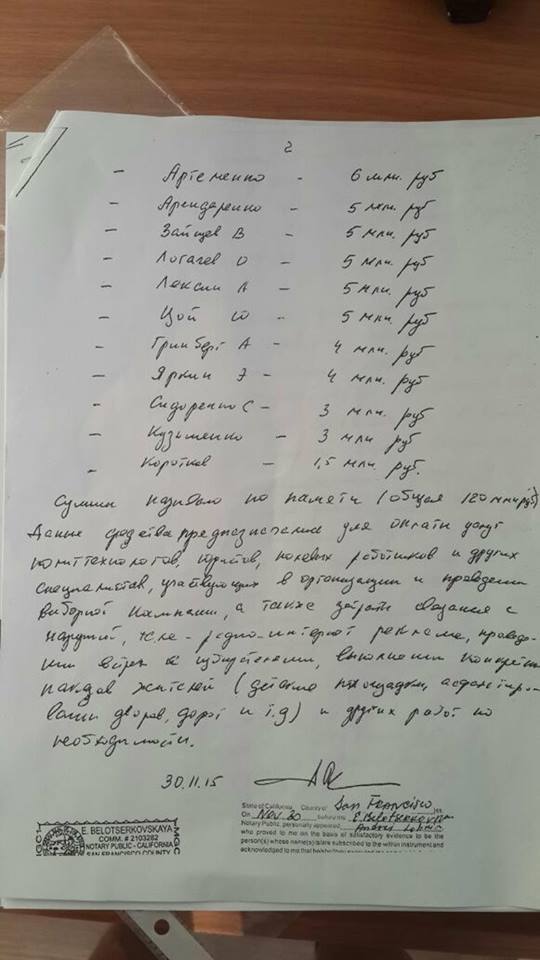 2
- Артеменко - 6 млн. руб
- Арендаренко - 5 млн. руб
- Зайцев В - 5 млн. руб
- Логачев О - 5 млн. руб
- Лексин А - 5 млн. руб
- Цой Ю - 5 млн. руб
- Гринберг А - 4 млн. руб
- Яркин Э - 4 млн. руб
- Сидоренко С - 3 млн. руб
- Кузьменко - 3 млн. руб
- Коротков - 1,5 млн. руб.
Суммы называю по памяти (общая 120 млн руб)
Данные средства предназначены для оплаты услуг
политтехнологов, юристов, полевых работников и других
специалистов, участвующих в организации и проведении
выборной кампании, а также затрат связанных с
наружной, теле-радио-интернет рекламе, проведе-
нии встреч с избирателями, выполнении
наказов жителей (детские площадки, асфальтиро-
вании дворов, дорог и т.д) и других работ по
необходимости.
30.11.15
State of California County of San Francisco }ss.
On Nov 30 before me E. Belotserkovskaya
Notary Public, personally appeared Andrei
who proved to me on the basis of satisfactory evidence to be the
person(s) whose name(s) is/are subscribed to the within instrument and
acknowledged to me that
E. BELOTSERKOVSKAYA
COMM. # 2103282
NOTARY PUBLIC - CALIFORNIA
SAN FRANCISCO COUNTY